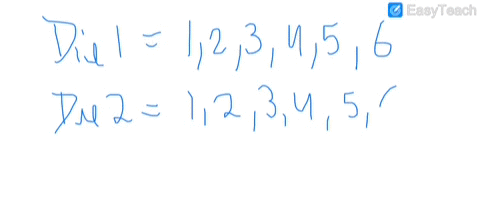 EasyTeach
Die 1 = 1, 2, 3, 4, 5, 6
Die 2 = 1, 2, 3, 4, 5,